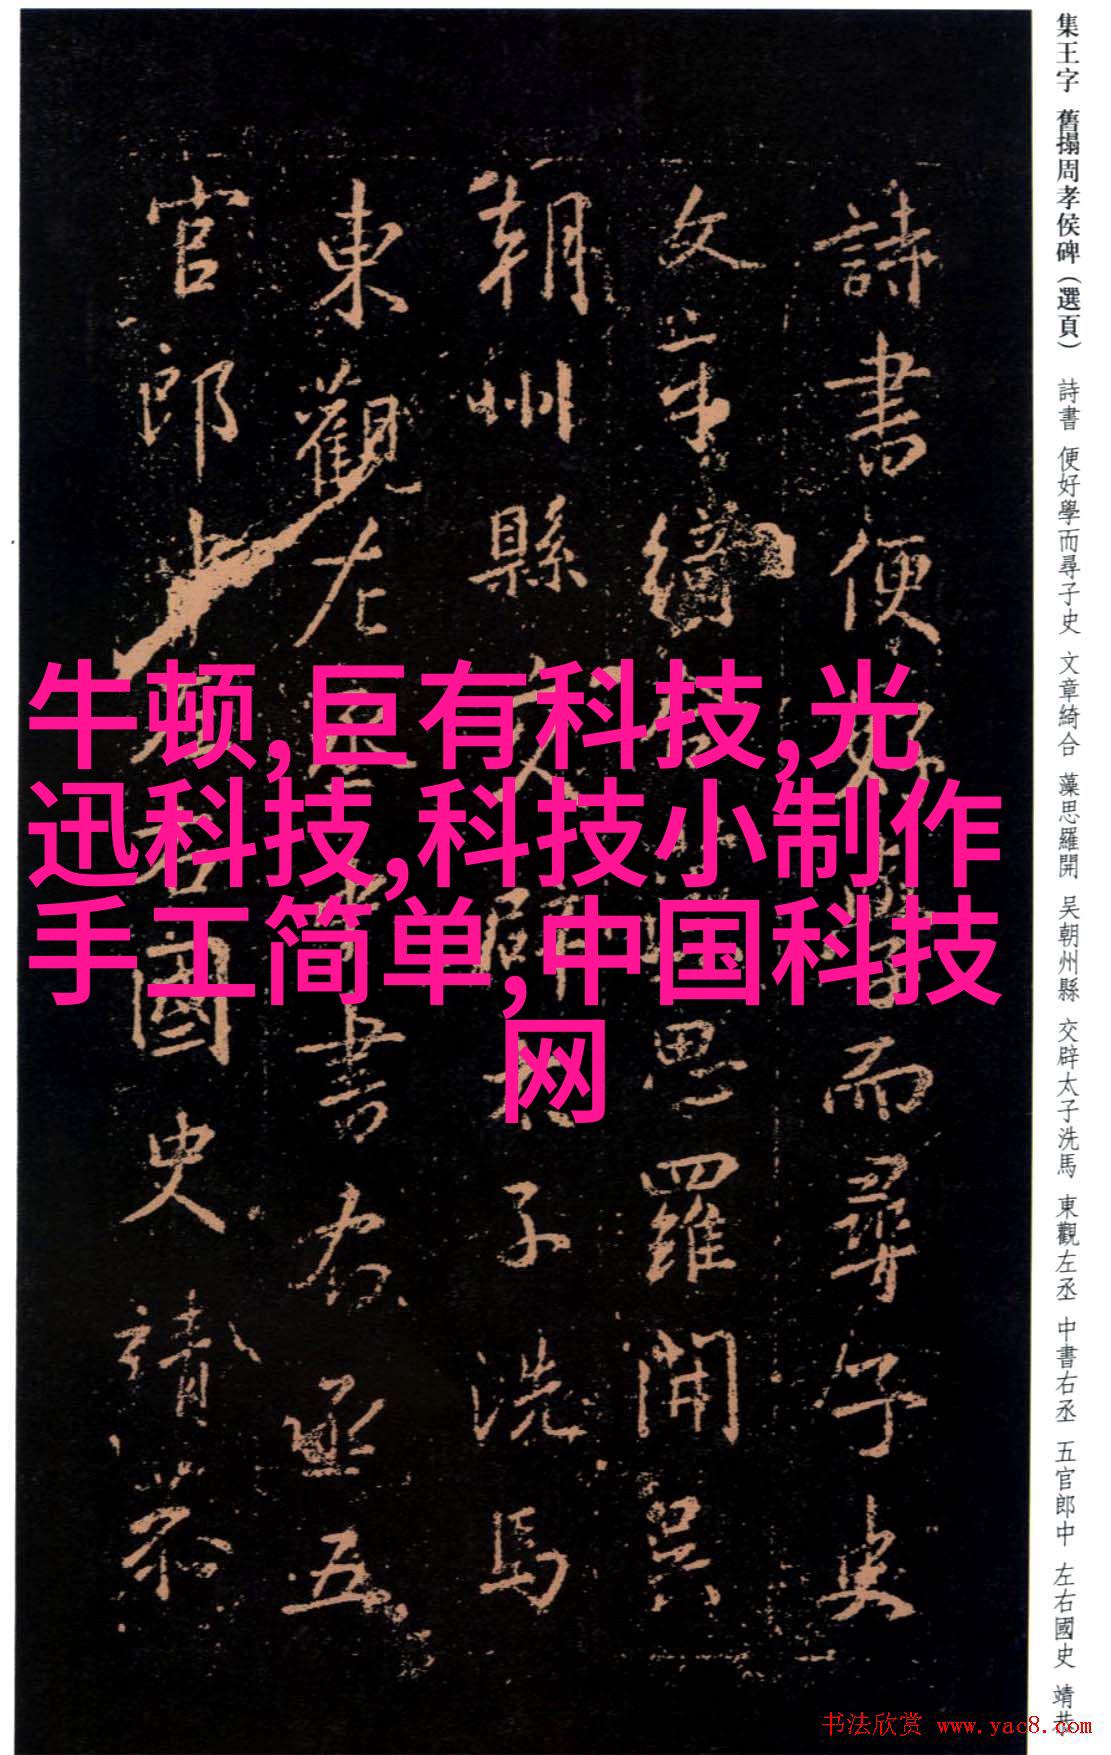 集王字 舊搨周孝侯碑（選頁） 詩書 便好學而尋子史 文章綺合 藻思羅開 吴朝州縣 交辟太子洗馬 東觀左丞 中書右丞 五官郎中 左右國史 靖恭
詩書便好學而尋子史
文章綺合藻思羅開吳
朝州縣交辟太子洗馬
東觀左丞中書右丞五
官郎中左右國史靖恭
牛顿,巨有科技,光
迅科技,科技小制作
手工简单,中国科技
网
书法欣赏 www.yac8.com